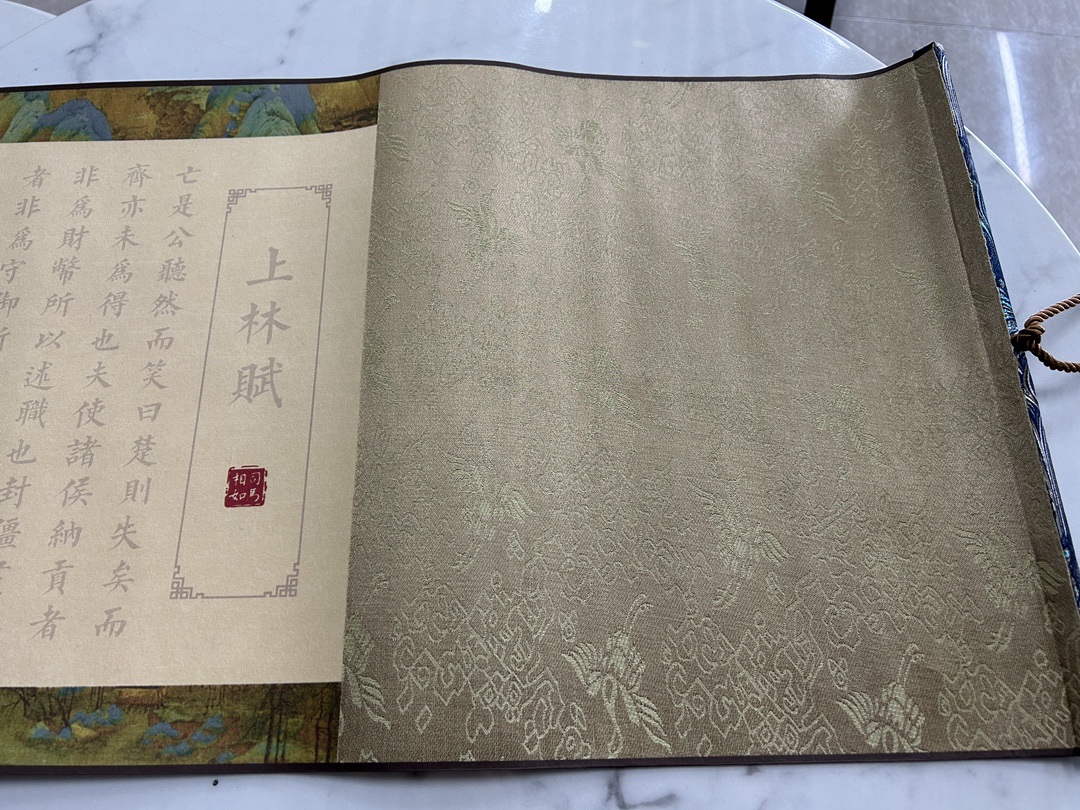 上林賦
司馬
相如
亡是公聽然而笑曰楚則失矣而
齊亦未爲得也夫使諸侯納貢者
非爲財幣所以述職也封疆
者非爲守御所